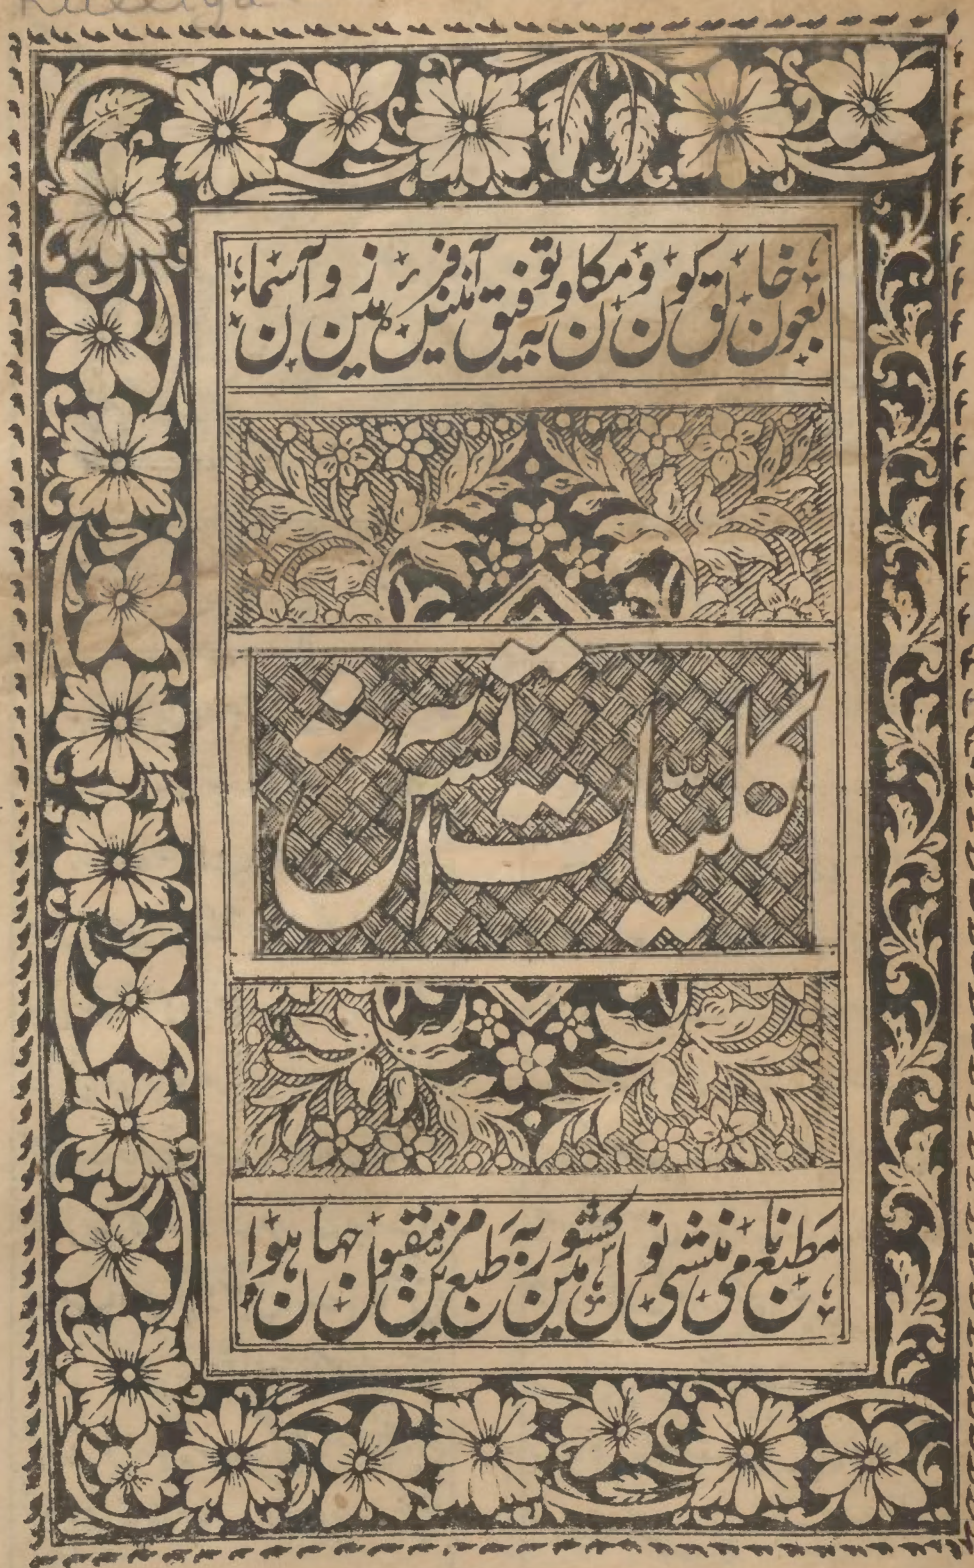 بعون خالق کون و مکان و بتوفیق آفرینندہ زمین و آسمان
کلیات آتش
مطبع نامی منشی نولکشور مین طبع مقبول جہان ہوا